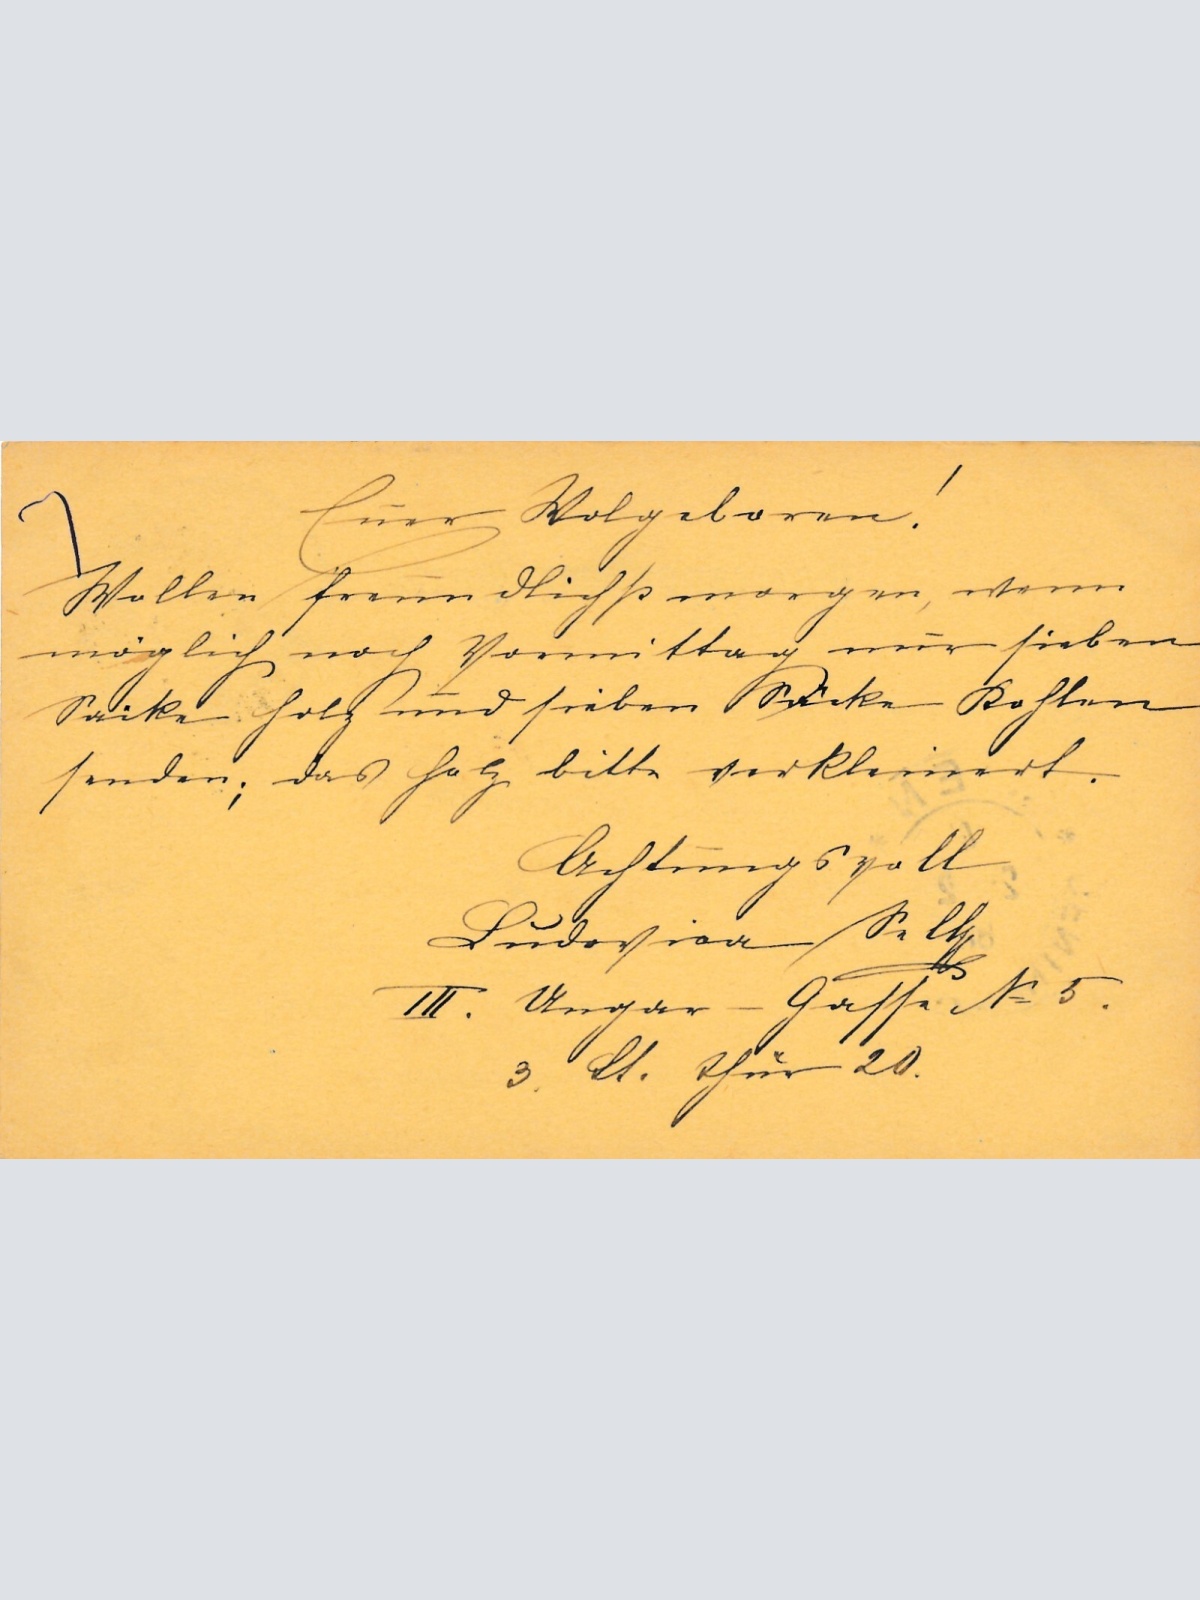 Euer Wolgeboren!
Wollen freundlichst morgen, wenn
möglich noch Vormittag nur sieben
Säcke Holz und sieben Säcke Kohlen
senden; das Holz bitte verkleinert.
Achtungsvoll
Ludovica
III. Ungar-Gasse № 5.
3. St. Thür 20.